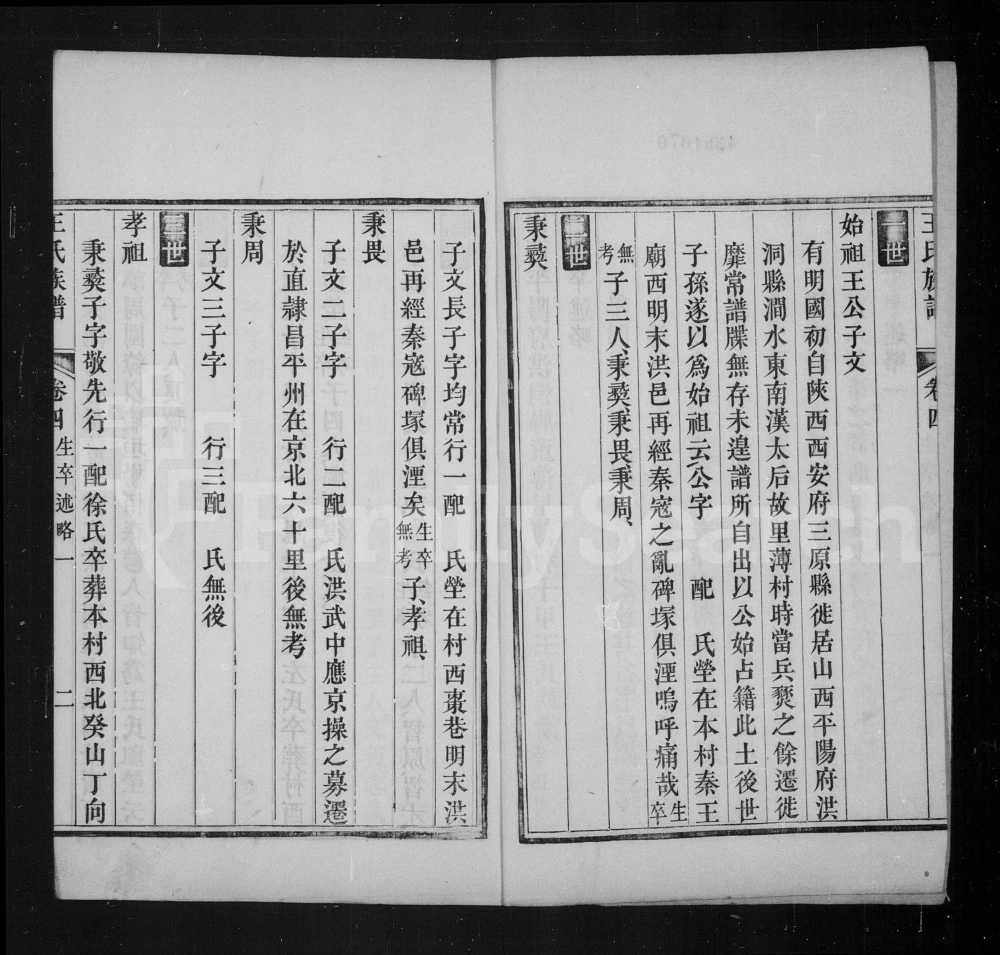 王氏族譜 卷四
世
始祖王公子文
有明國初自陝西西安府三原縣徙居山西平陽府洪
洞縣澗水東南漢太后故里薄村時當兵燹之餘遷徙
靡常譜牒無存未遑譜所自出以公始占籍此土後世
子孫遂以爲始祖云公字 配 氏塋在本村秦王
廟西明末洪邑再經秦寇之亂碑塚俱湮嗚呼痛哉生卒
無考子三人秉彞秉畏秉周
世
秉彞
子文長子字均常行一配 氏塋在村西棗巷明末洪
邑再經秦寇碑塚俱湮矣生卒無考子孝祖
秉畏
子文二子字 行二配 氏洪武中應京操之募遷
於直隸昌平州在京北六十里後無考
秉周
子文三子字 行三配 氏無後
世
孝祖
秉彞子字敬先行一配徐氏卒葬本村西北癸山丁向
王氏族譜 卷四 生卒述略一 二